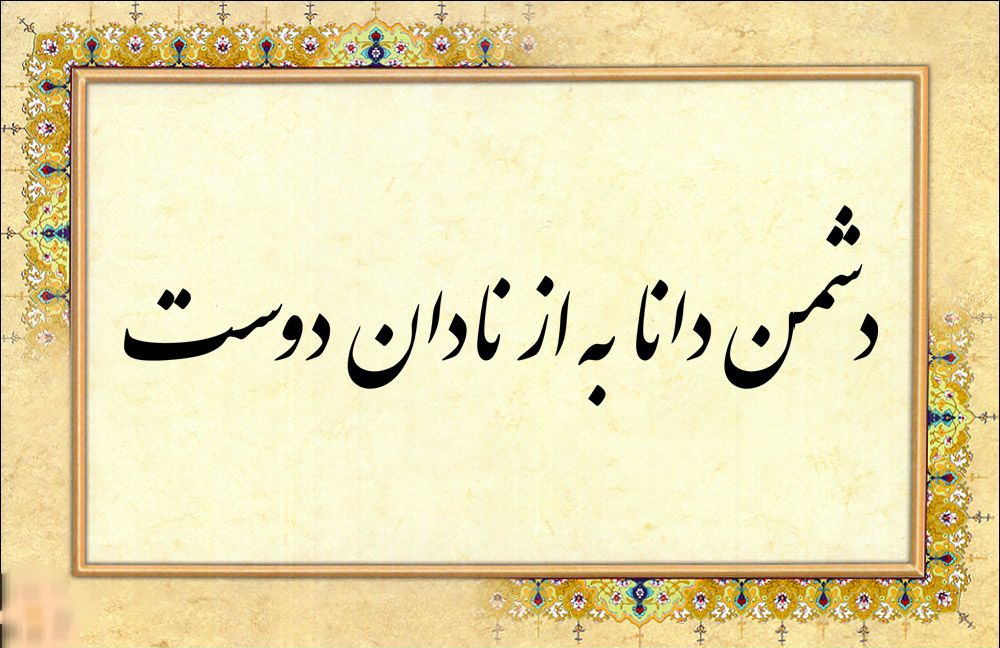 دشمن دانا به از نادان دوست